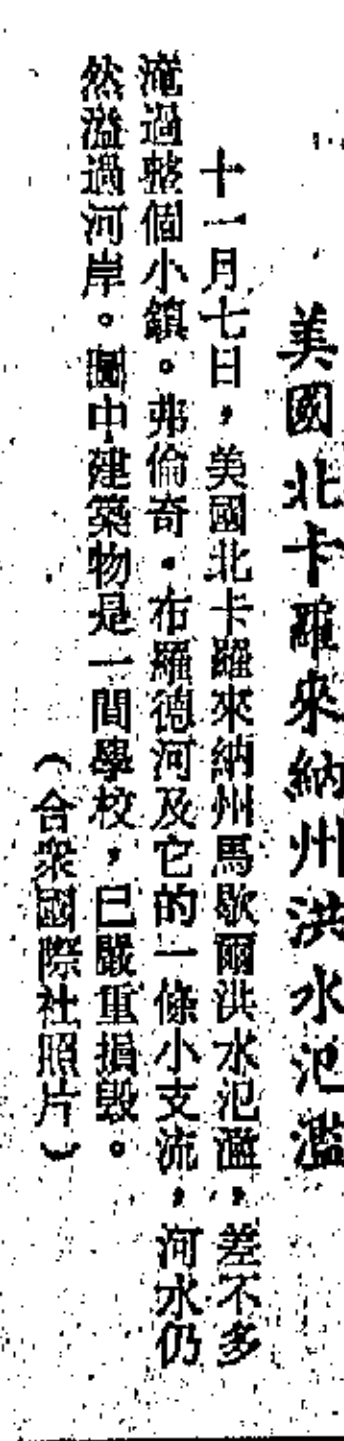 美國北卡羅來納州洪水氾濫
十一月七日，美國北卡羅來納州馬歇爾洪水氾濫，差不多
淹過整個小鎮。弗倫奇·布羅德河及它的一條小支流，河水仍
然溢過河岸。圖中建築物是一間學校，已嚴重損毀。
（合衆國際社照片）